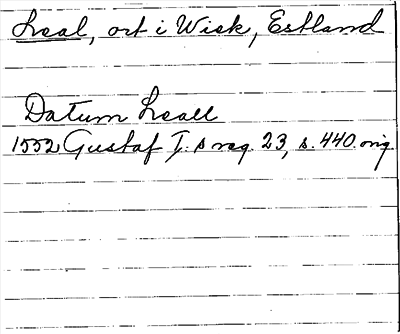 Leal, ort i Wiek, Estland
Datum Leall
1552 Gustaf I:s reg. 23, s. 440. orig.